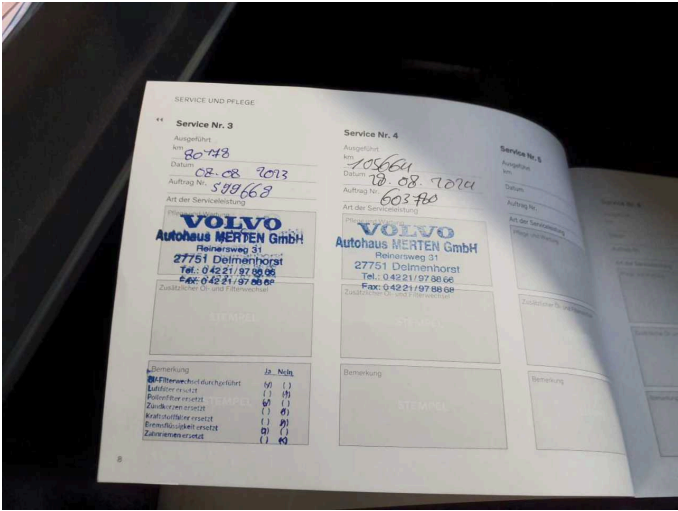 SERVICE UND PFLEGE
Service Nr. 3
Ausgeführt
km 80778
Datum 08.08 2023
Auftrag Nr. 599668
Art der Serviceleistung
VOLVO
Autohaus MERTEN GmbH
Reinersweg 31
27751 Delmenhorst
Tel.: 0 42 21 / 97 88 66
Fax: 0 42 21 / 97 88 68
Zusätzlicher Öl- und Filterwechsel
STEMPEL
Bemerkung Ja Nein
Öl-Filterwechsel durchgeführt
Luftfilter ersetzt
Pollenfilter ersetzt
Zündkerzen ersetzt
Kraftstofffilter ersetzt
Bremsflüssigkeit ersetzt
Zahnriemen ersetzt
8
Service Nr. 4
Ausgeführt
km 105664
Datum 28.08.2024
Auftrag Nr. 603780
Art der Serviceleistung
VOLVO
Autohaus MERTEN GmbH
Reinersweg 31
27751 Delmenhorst
Tel.: 0 42 21 / 97 88 66
Fax: 0 42 21 / 97 88 68
Zusätzlicher Öl- und Filterwechsel
Bemerkung
STEMPEL
Service Nr. 5
Ausgeführt
km
Datum
Auftrag Nr.
Art der Serviceleistung
Pflege und Wartung
Zusätzlicher Öl- und
Bemerkung